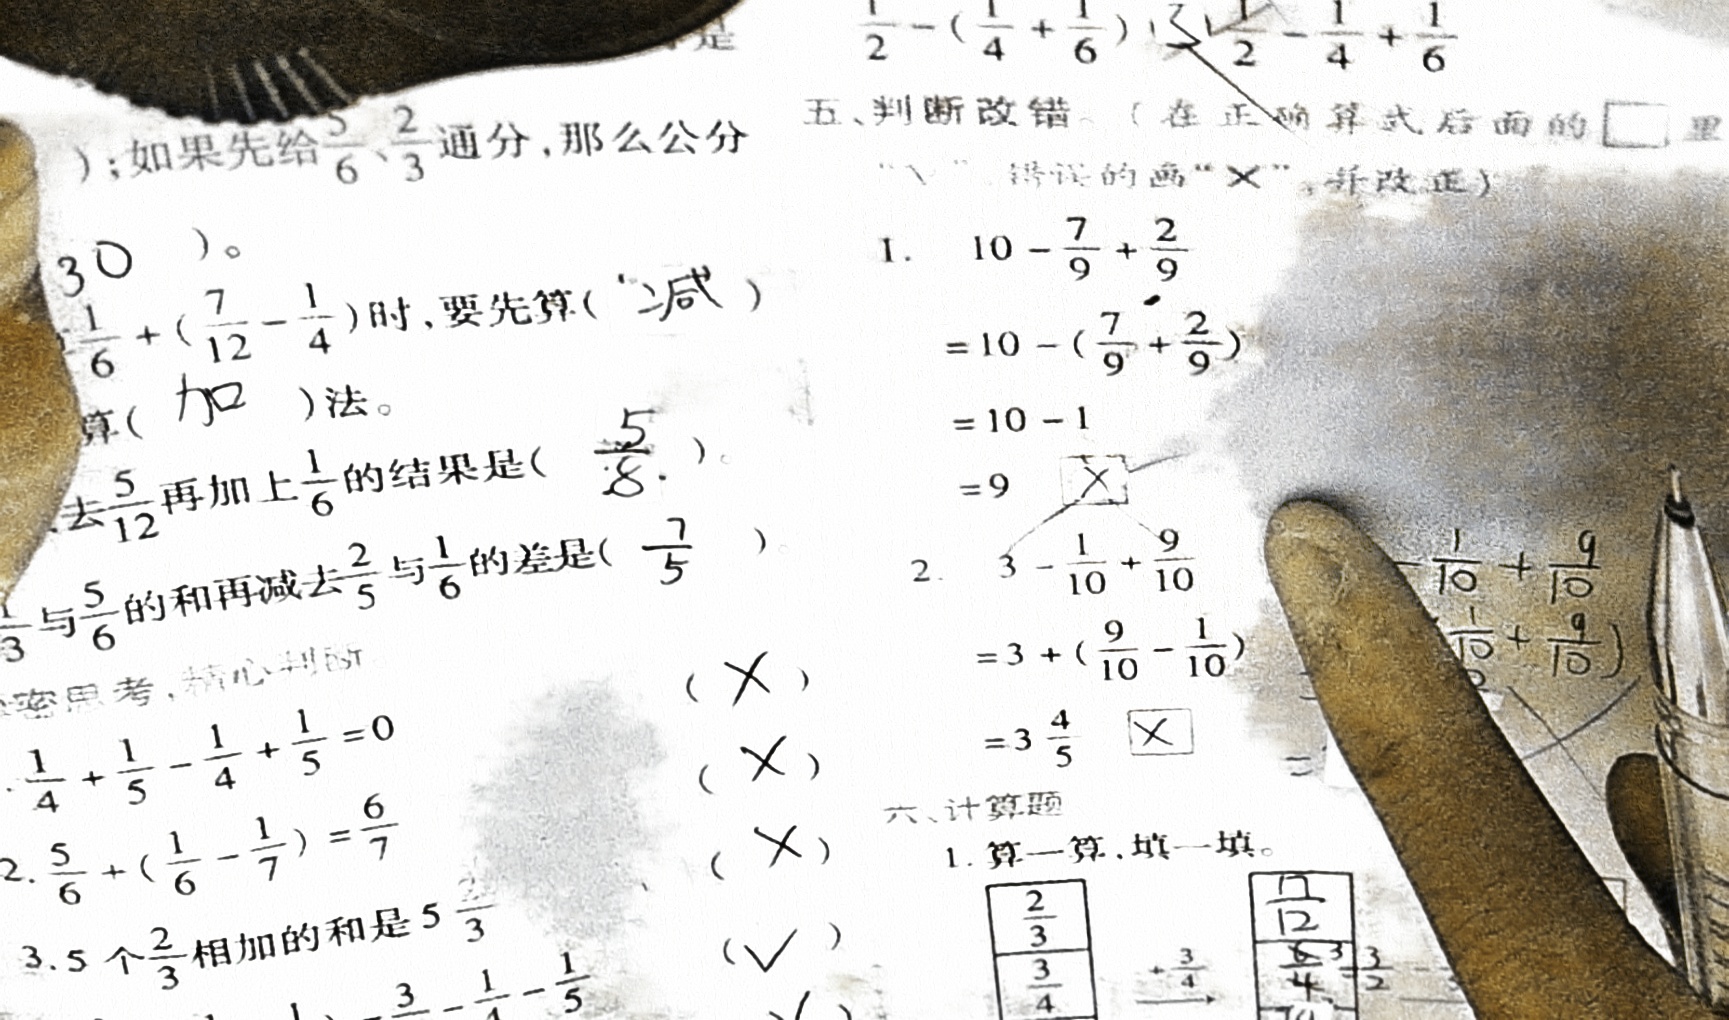 是
);如果先给5/6、2/3通分,那么公分
30 )。
1/6+(7/12-1/4)时,要先算( 减 )
算( 加 )法。
去5/12再加上1/6的结果是( 5/8 )。
1/3与5/6的和再减去2/5与1/6的差是( 7/5 )
密思考,精心判断
(×)
1/4+1/5-1/4+1/5=0 (×)
2. 5/6+(1/6-1/7)=6/7 (×)
3. 5个2/3相加的和是5 2/3 (√)
3/ -1/4-1/5
1/2-(1/4+1/6) 1/2-1/4+1/6
五、判断改错。(在正确算式后面的□里
“√”,错误的画“×”,并改正)
1. 10-7/9+2/9
=10-(7/9+2/9)
=10-1
=9 ×
2. 3-1/10+9/10
=3+(9/10-1/10)
=3 4/5 ×
-1/10+9/10
1/10+9/10)
=
六、计算题
1. 算一算,填一填。
2/3 17/12
3/4 +3/4 =3/2